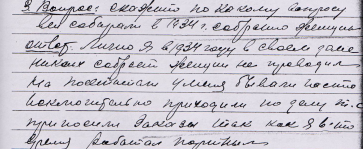 3 Вопрос: скажите по какому вопросу
вы собирали в 1934 г. собрание женщин
ответ. Лично я в 1934 году в своем доме
никаких собраний женщин не проводил
На посещении у меня бывали часто
исключительно приходили по делу т.е.
приносили заказы так как я в то
время работал портным